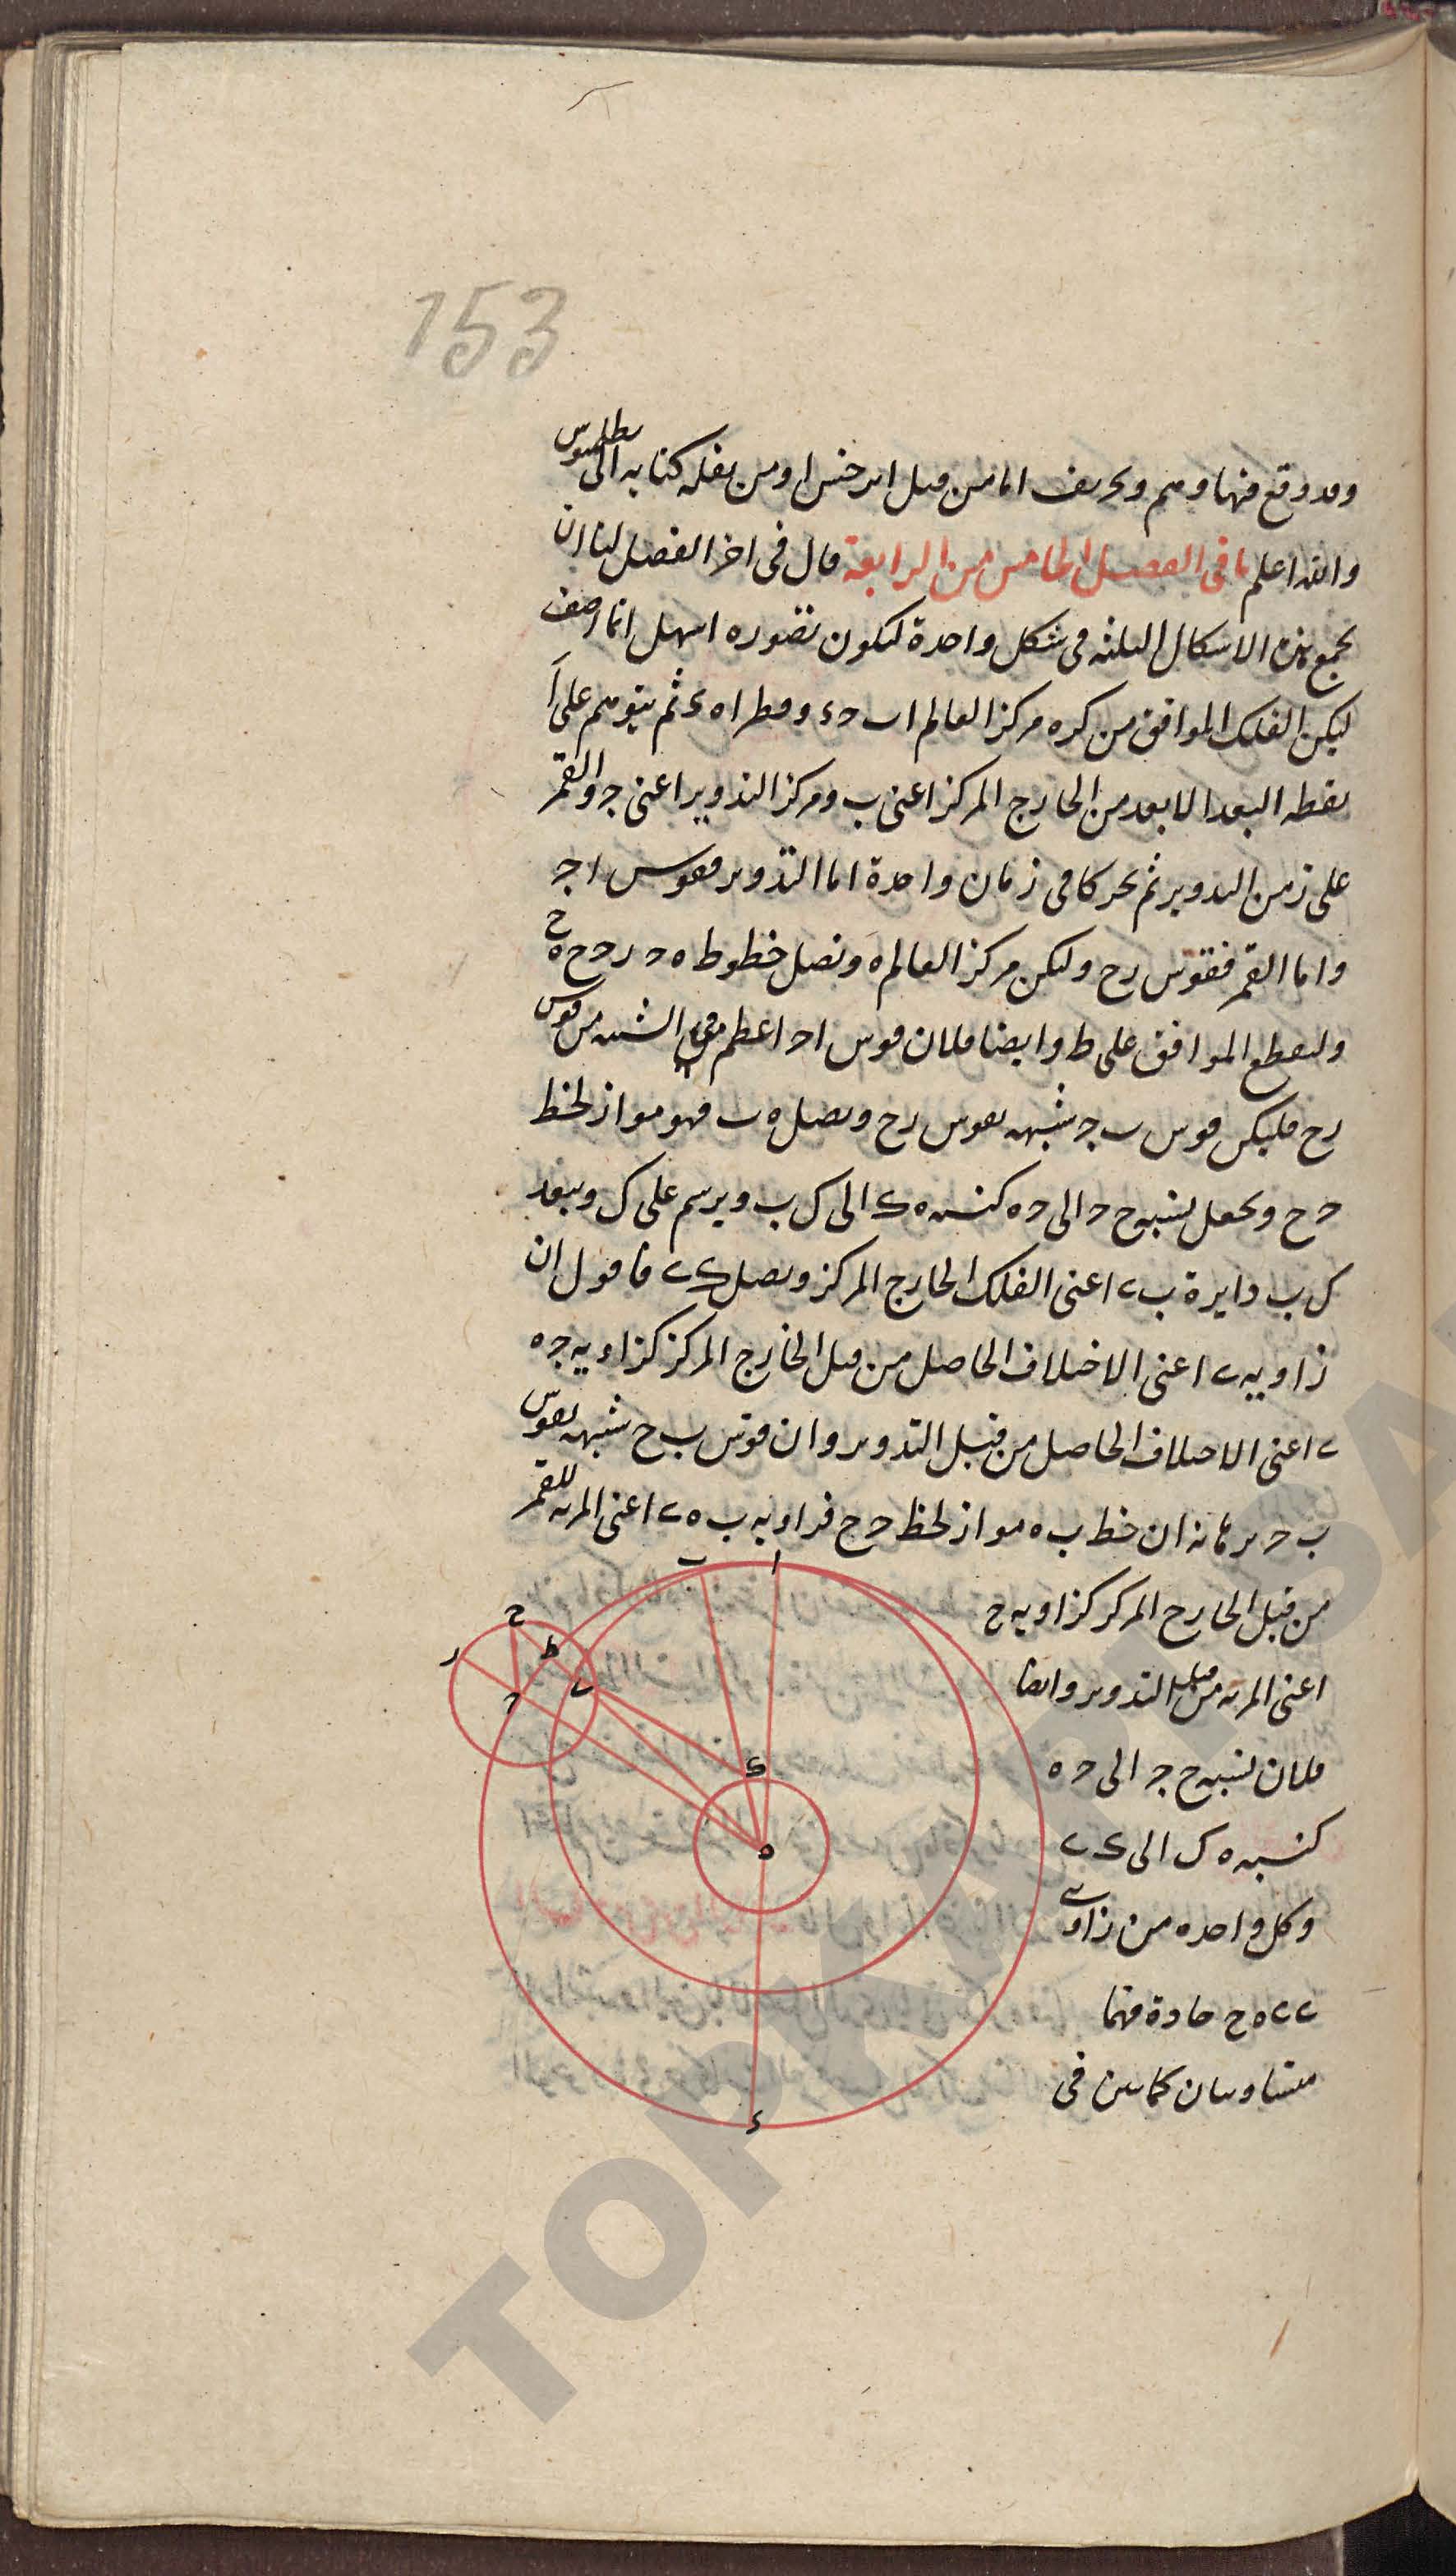 153
وقد وقع فيها وهم وتحريف اما من قبل ابرخس او من نقله كتابه الى بطلميوس
والله اعلم ما فى الفصل الخامس من الرابعة قال فى اخر الفصل لنا ان
نجمع هذه الاشكال الثلثه فى شكل واحدة ليكون تصوره اسهل انما نصف
ليكن الفلك الموافق من كره مركز العالم اب ح د وقطر ا ه د ثم نتوهم على آ
نقطه البعد الابعد من الخارج المركز اعنى ب ومركز التدوير اعنى جـ والقمر
على ز من التدوير ثم تحركا فى زمان واحدة اما التدوير فقوس ا جـ
واما القمر فقوس رح وليكن مركز العالم ه ونصل خطوط ه ح ر ح ح ه ح
وليقطع الموافق على ط وايضا فلان قوس ا ح اعظم فى الشبه من قوس
رح فليكن قوس ب جـ شبيهه بقوس رح ونصل ه ب فهو مواز لخط
ح ح ونجعل نسبه ح ح الى ح ه كنسبه ه ك الى ك ب ويرسم على ك وببعد
ك ب دايرة ب ى اعنى الفلك الخارج المركز ونصل ك ى فاقول ان
زاويه ى اعنى الاختلاف الحاصل من قبل الخارج المركز كزاويه جـ ه
ى اعنى الاختلاف الحاصل من قبل التدوير وان قوس ب ح شبيهه بقوس
ب ح برهانه ان خط ب ه مواز لخط ح ح فزاويه ب ه ى اعنى المريه للقمر
من قبل الخارج المركز كزاويه ح
اعنى المريه من قبل التدوير وايضا
فلان نسبه ح جـ الى ح ه
كنسبه ه ك الى ك ى
وكل واحده من زاويتى
ى ى ه ح حادة فهما
متساويتان كما تبين فى
ا
ب
ح
ر
ط
ح
ى
ك
ه
د
TOPKAPI SA